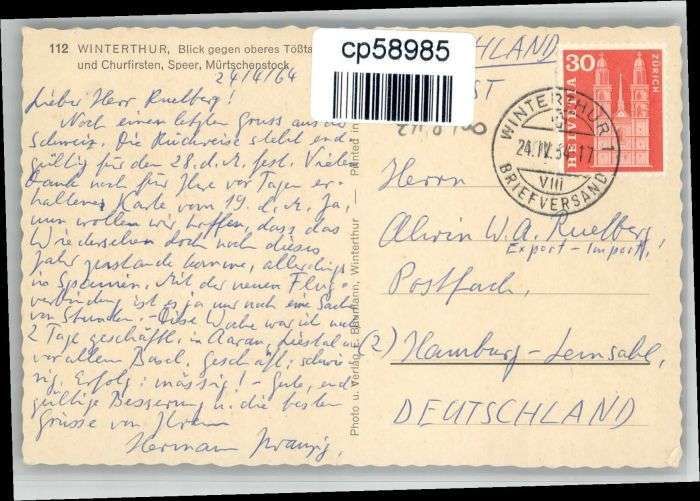 112 WINTERTHUR, Blick gegen oberes Tößta
und Churfirsten, Speer, Mürtschenstock
24/4/64
Lieber Herr Ruelberg!
Noch einen letzten Gruss aus der
Schweiz. Die Rückreise steht end-
gültig für den 28. d. M. fest. Vielen
Danke noch für Ihre vor Tagen er-
haltene Karte vom 19. d. M. Ja,
nun wollen wir hoffen, dass das
Wiedersehen doch noch dieses
Jahr zustande komme, allerdings
in Spanien. Mit der neuen Flug-
verbindung ist es ja nur noch eine Sache
von Stunden. - Diese Woche war ich noch
2 Tage geschäftl. in Aarau, Liestal u.
vor allem Basel. Geschäft: schwie-
rig. Erfolg: mässig! - Gute, end-
gültige Besserung u. die besten
Grüsse von Ihrem
Herman
Photo u. Verlag E. Baumann, Winterthur - Printed in
cp58985
HLAND
ST
30
HELVETIA
ZÜRICH
WINTERTHUR 1
24.IV.64-17
VIII
BRIEFVERSAND
Herrn
Alwin W. A. Ruelberg,
Export-Import,
Postfach,
(2) Hamburg-Lemsahl,
DEUTSCHLAND